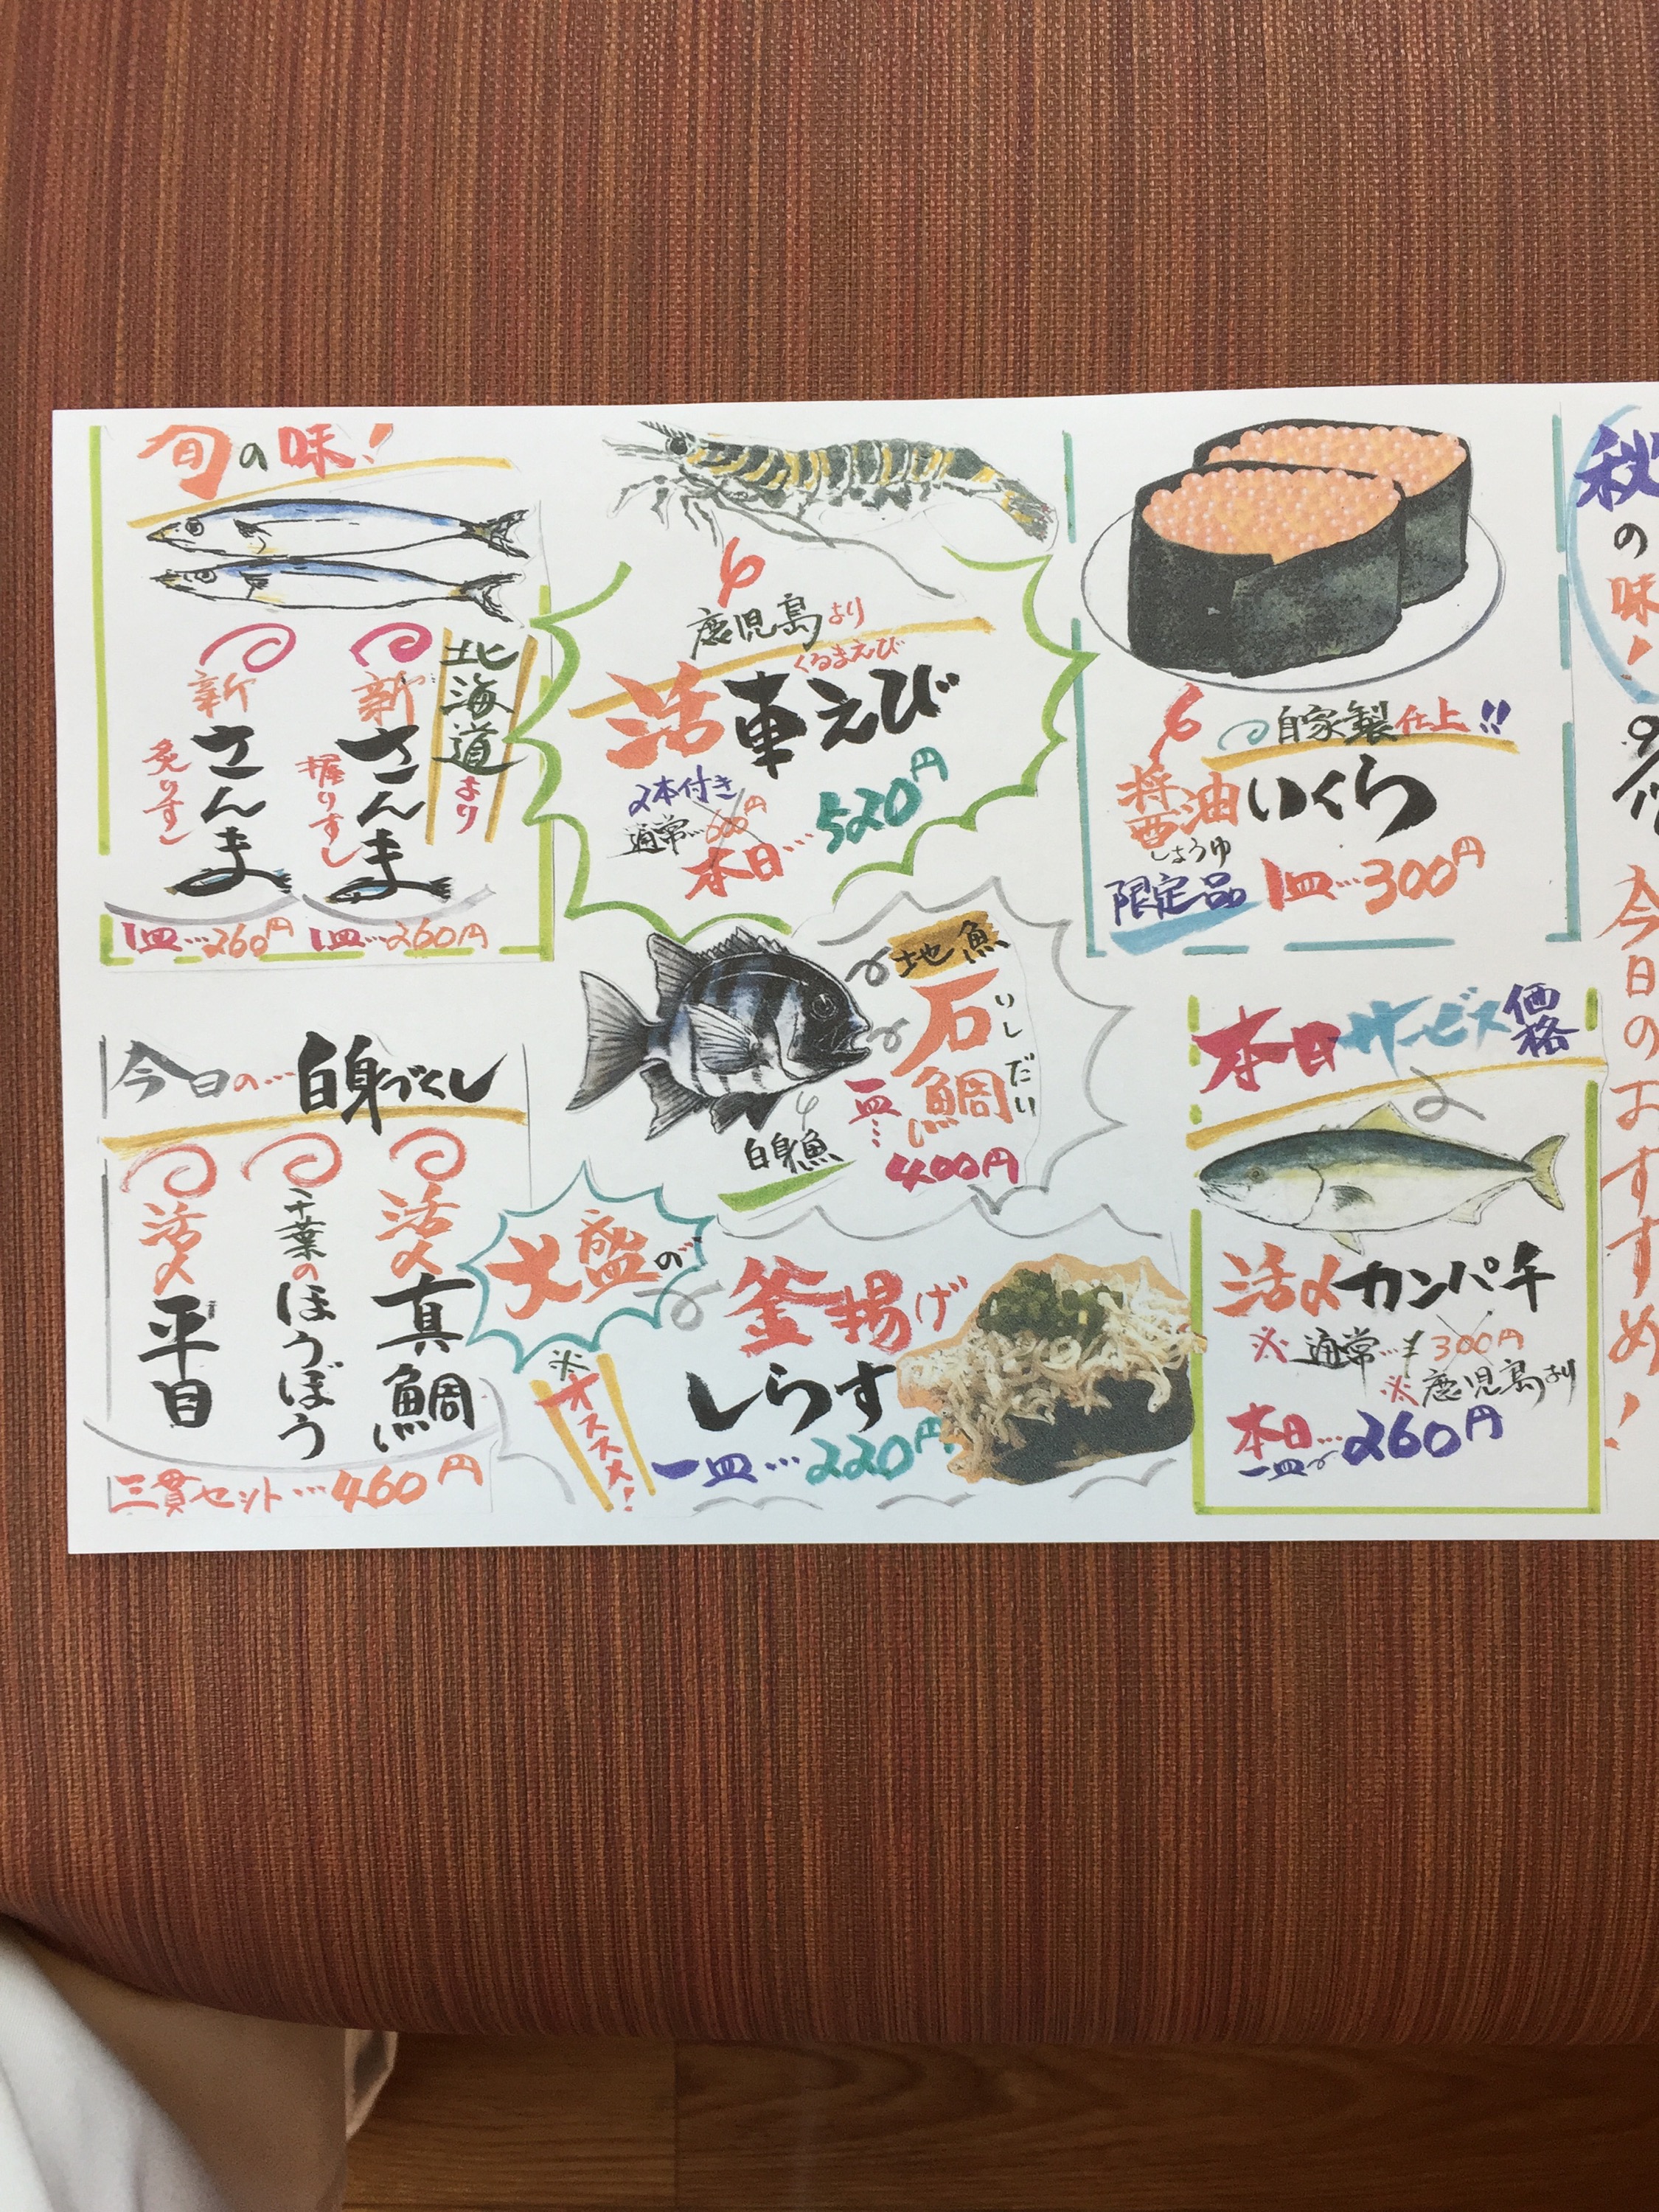 秋
の
味!
今日のおすすめ!
自家製仕上!!
醤油いくら
しょうゆ
限定品
1皿…300円
本日サービス価格
活〆カンパチ
※通常…¥300円
※鹿児島より
本日…260円
一皿
鹿児島より
くるまえび
活車えび
2本付き
通常…600円
本日…520円
地魚
石鯛
いしだい
白身魚
一皿…
400円
大盛の
釜揚げ
しらす
※オススメ!
一皿…220円
旬の味!
北海道より
新さんま
握りすし
1皿…260円
新さんま
炙りすし
1皿…260円
今日の…白身づくし
活〆真鯛
千葉のほうぼう
活〆平目
三貫セット…460円